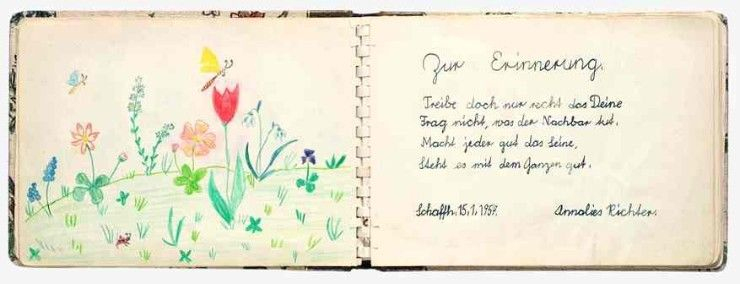 Zur Erinnerung.
Treibe doch nur recht das Deine
Frag nicht, was der Nachbar tut.
Macht jeder gut das Seine,
Steht es mit dem Ganzen gut.
Schaffh. 15.1.1959. Annalies Richter.